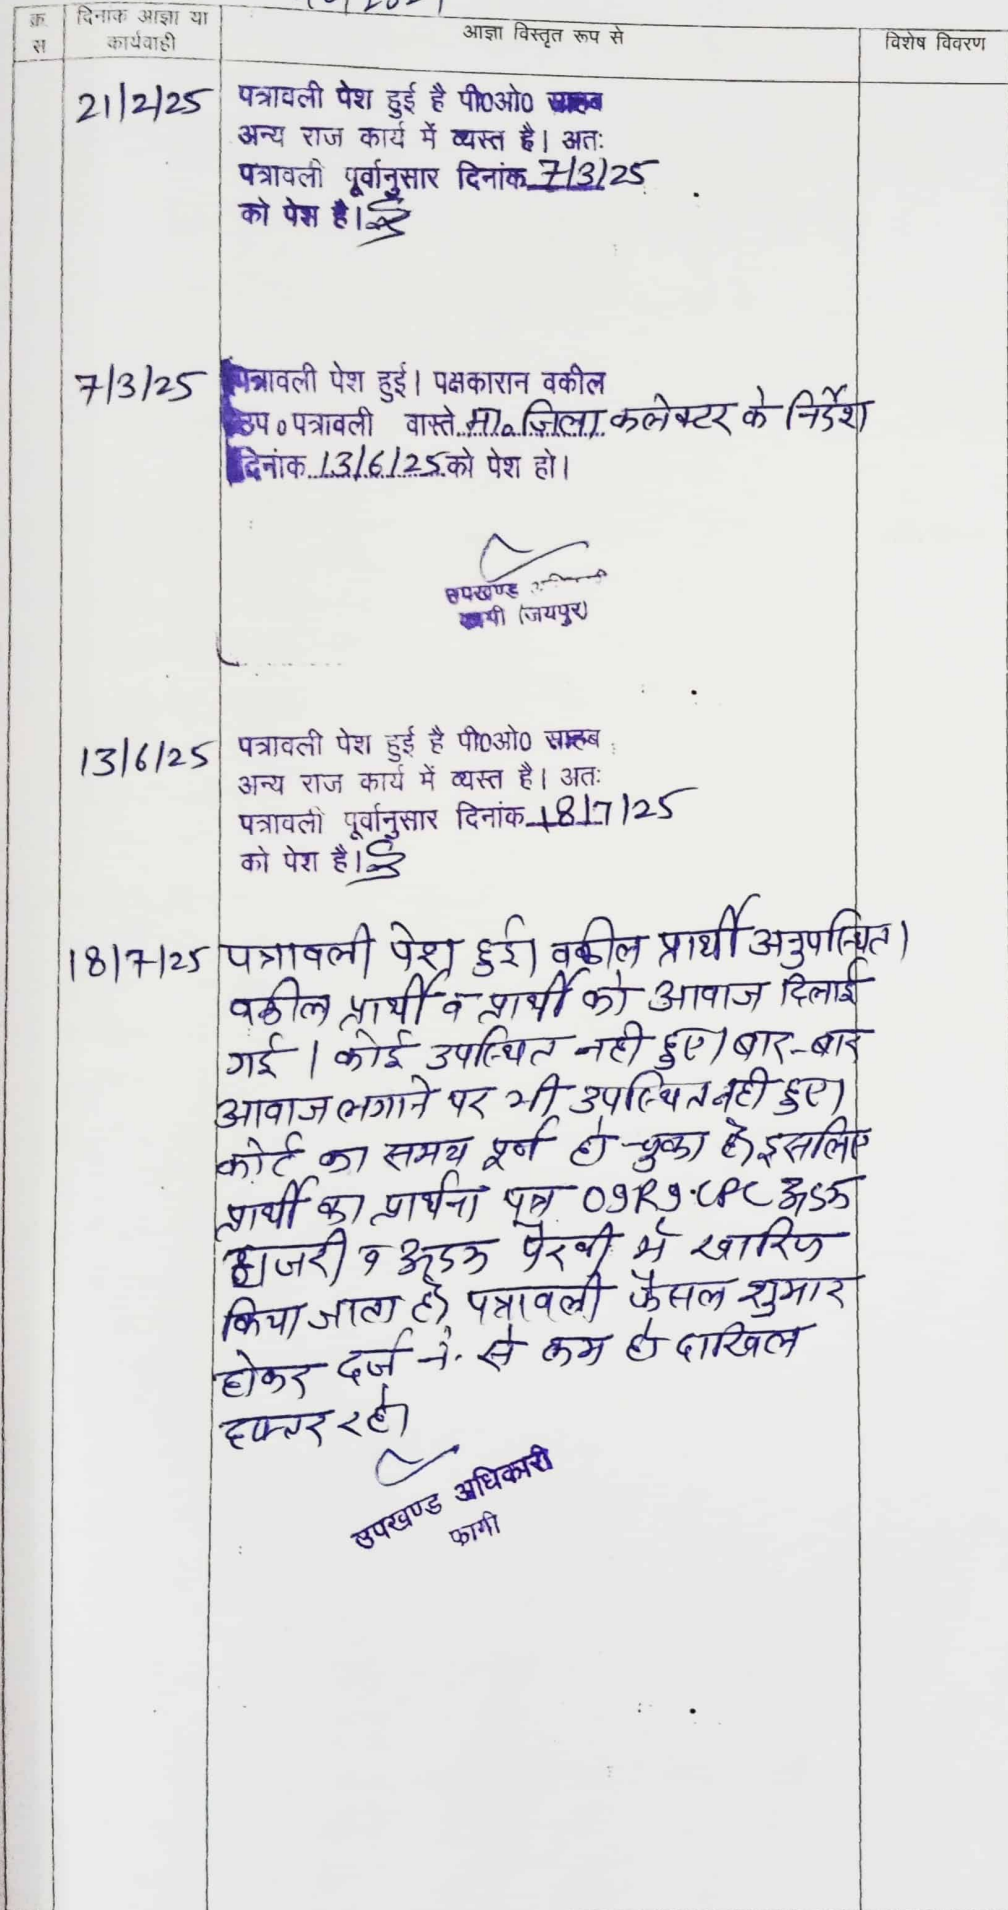 क्र. स
दिनाक आज्ञा या कार्यवाही
आज्ञा विस्तृत रूप से
विशेष विवरण
21/2/25
पत्रावली पेश हुई है पी0ओ0 साहब
अन्य राज कार्य में व्यस्त है। अतः
पत्रावली पूर्वानुसार दिनांक 7/3/25
को पेश है।
7/3/25
पत्रावली पेश हुई। पक्षकारान वकील
उप० पत्रावली वास्ते मा० जिला कलेक्टर के निर्देश
दिनांक 13/6/25 को पेश हो।
उपखण्ड
फागी (जयपुर)
13/6/25
पत्रावली पेश हुई है पी0ओ0 साहब
अन्य राज कार्य में व्यस्त है। अतः
पत्रावली पूर्वानुसार दिनांक 18/7/25
को पेश है।
18/7/25
पत्रावली पेश हुई। वकील प्रार्थी अनुपस्थित।
वकील प्रार्थी व प्रार्थी को आवाज दिलाई
गई। कोई उपस्थित नही हुए। बार-बार
आवाज लगाने पर भी उपस्थित नही हुए।
कोर्ट का समय पूर्ण हो चुका है। इसलिए
प्रार्थी का प्रार्थना पत्र O9R9 CPC अदम
हाजरी व अदम पैरवी में खारिज
किया जाता है। पत्रावली फैसल शुमार
होकर दर्ज नं. से कम हो दाखिल
दफ्तर रहे।
उपखण्ड अधिकारी
फागी